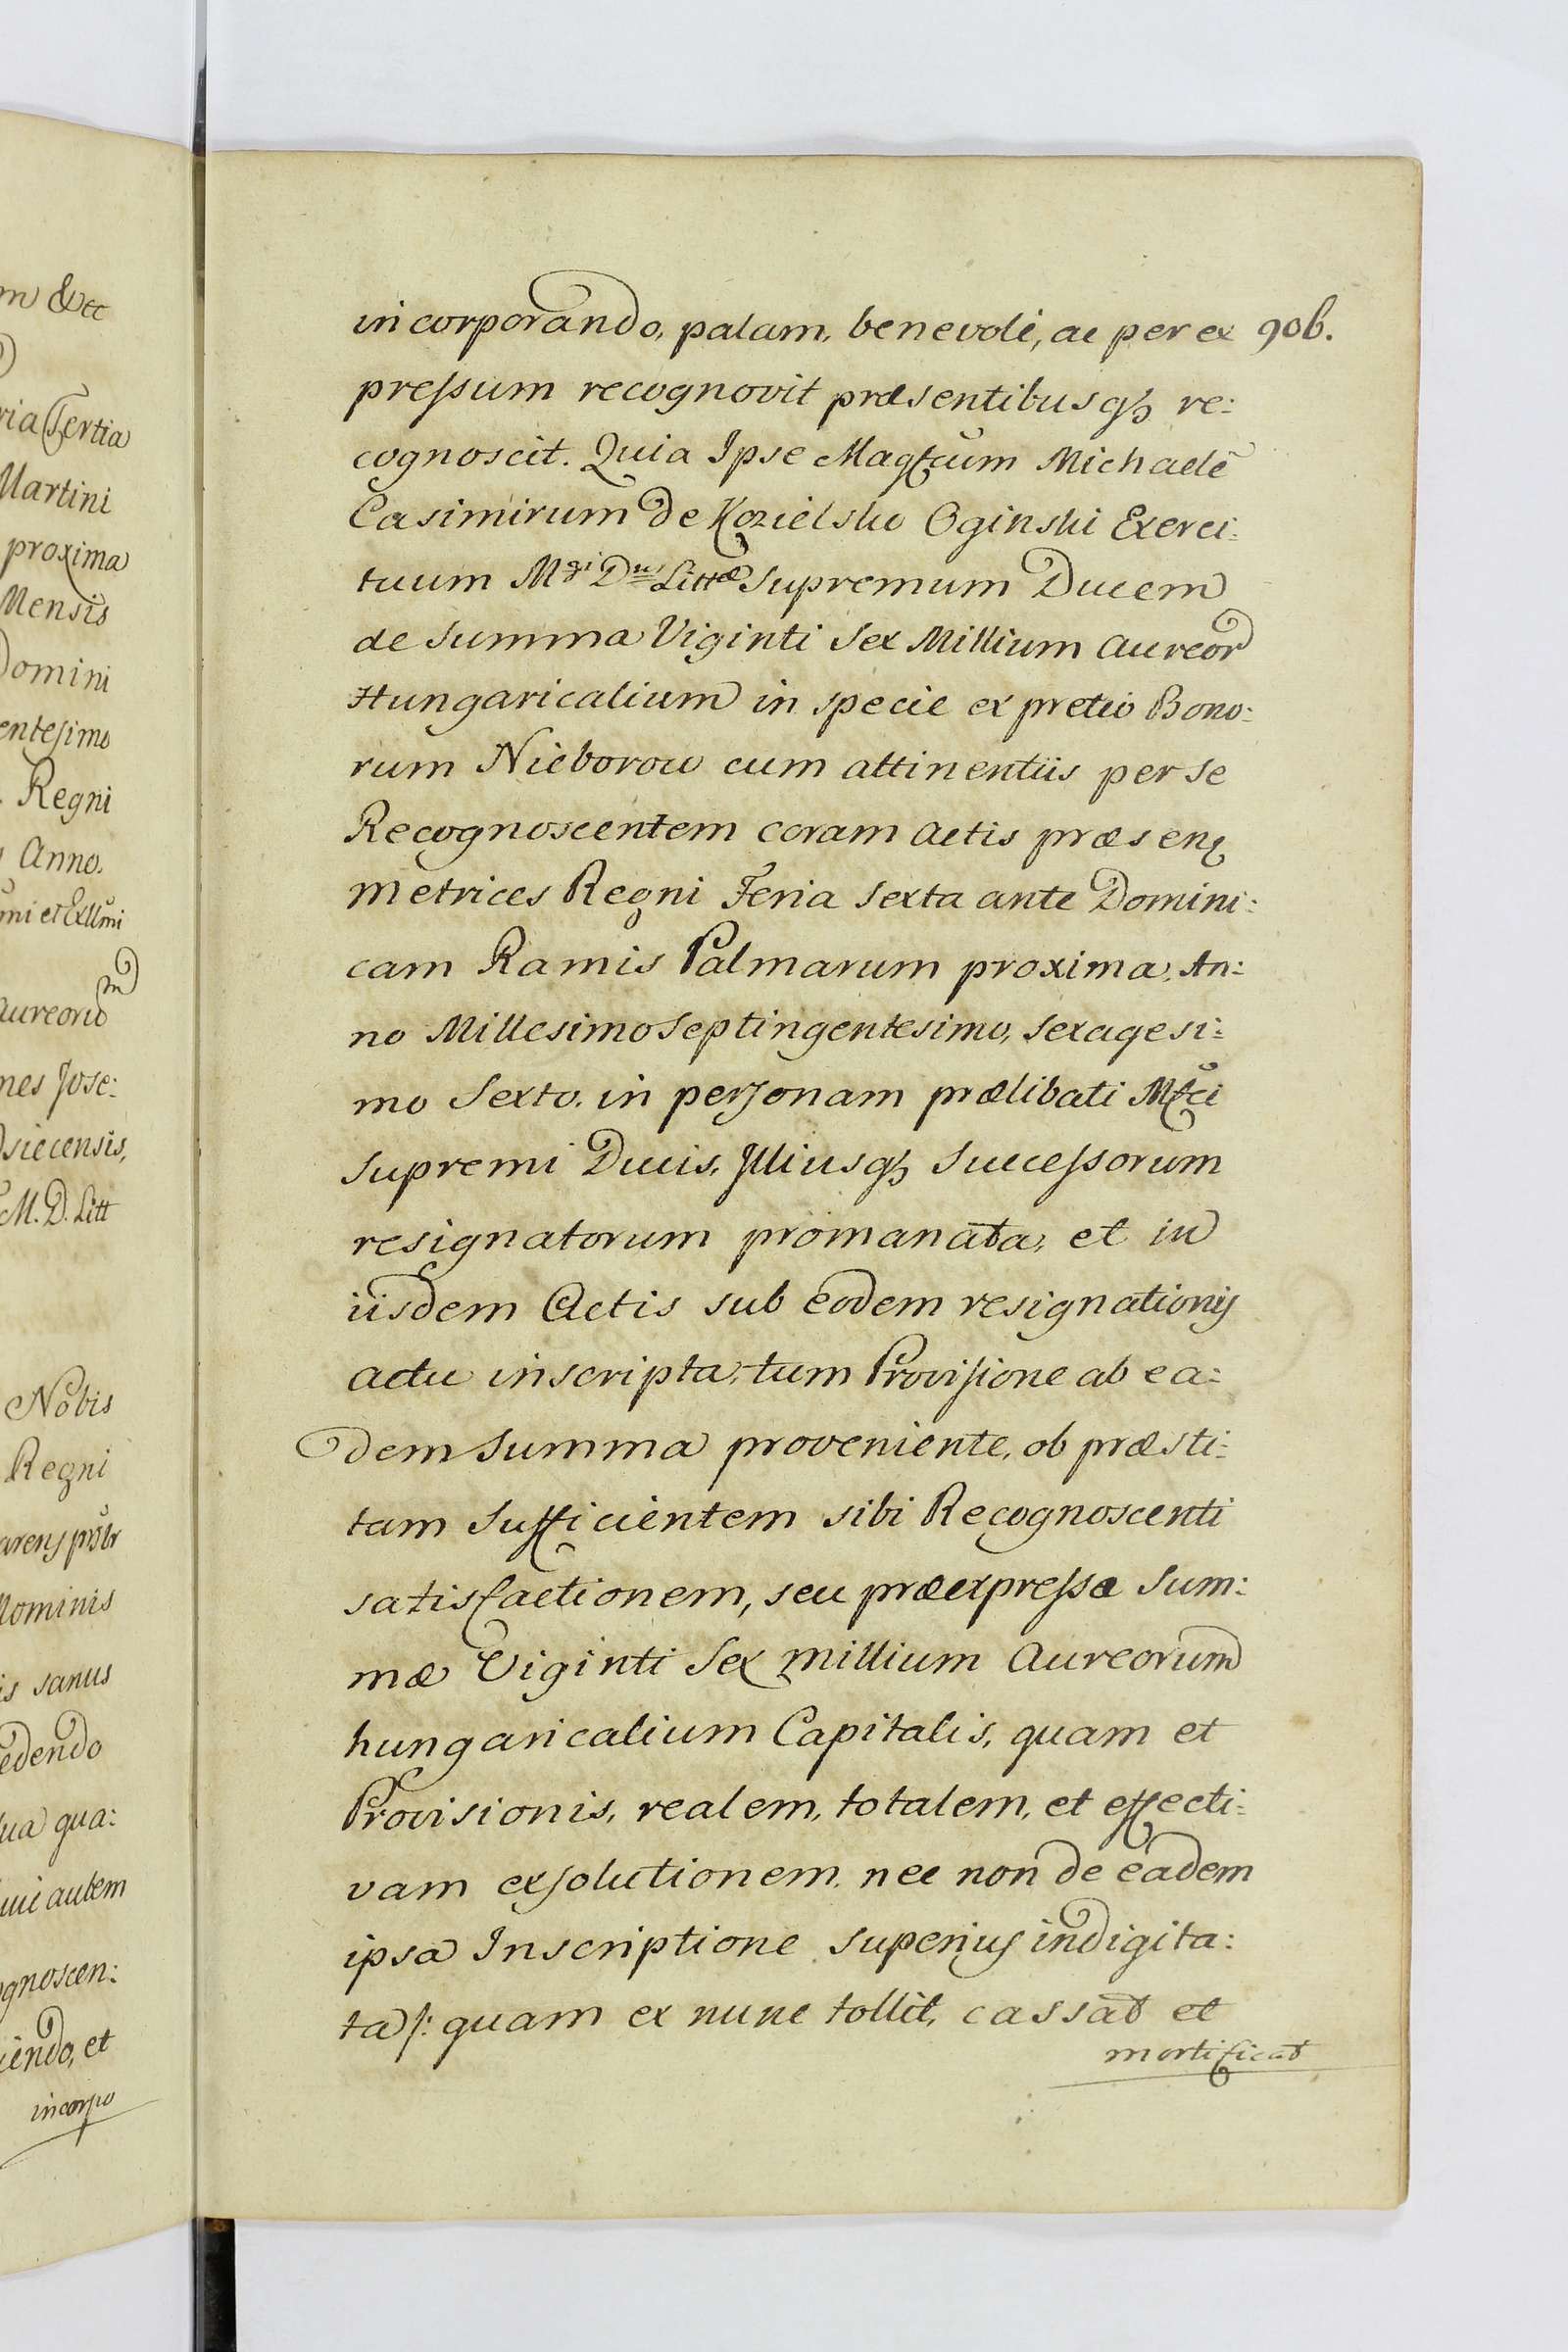 m &cc
ria Tertia
Martini
proxima
Mensis
Domini
entesimo
Regni
Anno.
mi et Exllmi
aureorum
nes Jose:
siecensis,
M. D. Litt
Nobis
Regni
arens psbr
Nominis
is sanus
edendo
ua qua:
uie autem
ognoscen:
iendo, et
incorpo
incorporando, palam, benevole, ac per ex 906.
pressum recognovit præsentibusq3 re:
cognoscit. Quia Ipse Magfcum Michaelē
Casimirum de Kozielsko Oginski Exerci:
tuum Mgi Dus Littæ Supremum Ducem
de Summa Viginti Sex Millium aureor
Hungaricalium in specie ex pretio Bono:
rum Nieborow cum attinentiis per se
Recognoscentem coram actis præsenę
metrices Regni Feria Sexta ante Domini:
cam Ramis Palmarum proxima, An:
no Millesimo Septingentesimo, Sexagesi:
mo Sexto. in personam prælibati Mfci
Supremi Ducis, Illiusq3 Successorum
resignatorum promanata, et in
iisdem Actis sub eodem resignationis
actu inscripta, tum Provisione ab ea:
dem Summa proveniente, ob præsti:
tam Sufficientem sibi Recognoscenti
satisfactionem, seu præexpressæ Sum:
mæ Viginti Sex millium Aureorum
hungaricalium Capitalis, quam et
Provisionis, realem, totalem, et effecti:
vam exsolutionem. nec non de eadem
ipsa Inscriptione superius indigita:
ta /: quam ex nunc tollit, cassat et
mortificat